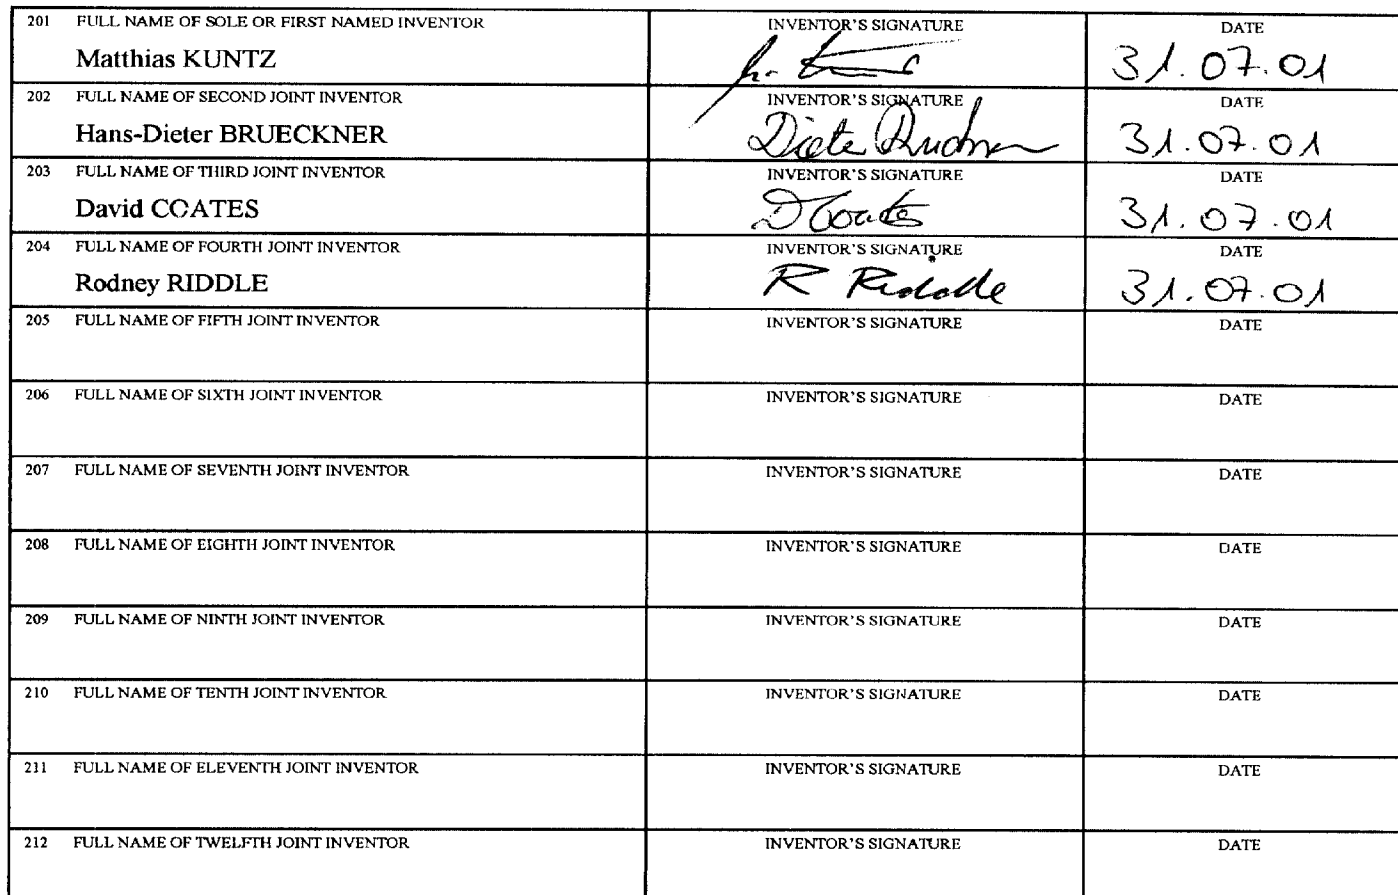 201 FULL NAME OF SOLE OR FIRST NAMED INVENTOR INVENTOR'S SIGNATURE DATE
Matthias KUNTZ 31.07.01
202 FULL NAME OF SECOND JOINT INVENTOR INVENTOR'S SIGNATURE DATE
Hans-Dieter BRUECKNER Dieter 31.07.01
203 FULL NAME OF THIRD JOINT INVENTOR INVENTOR'S SIGNATURE DATE
David COATES D Coates 31.07.01
204 FULL NAME OF FOURTH JOINT INVENTOR INVENTOR'S SIGNATURE DATE
Rodney RIDDLE R Riddle 31.07.01
205 FULL NAME OF FIFTH JOINT INVENTOR INVENTOR'S SIGNATURE DATE
206 FULL NAME OF SIXTH JOINT INVENTOR INVENTOR'S SIGNATURE DATE
207 FULL NAME OF SEVENTH JOINT INVENTOR INVENTOR'S SIGNATURE DATE
208 FULL NAME OF EIGHTH JOINT INVENTOR INVENTOR'S SIGNATURE DATE
209 FULL NAME OF NINTH JOINT INVENTOR INVENTOR'S SIGNATURE DATE
210 FULL NAME OF TENTH JOINT INVENTOR INVENTOR'S SIGNATURE DATE
211 FULL NAME OF ELEVENTH JOINT INVENTOR INVENTOR'S SIGNATURE DATE
212 FULL NAME OF TWELFTH JOINT INVENTOR INVENTOR'S SIGNATURE DATE